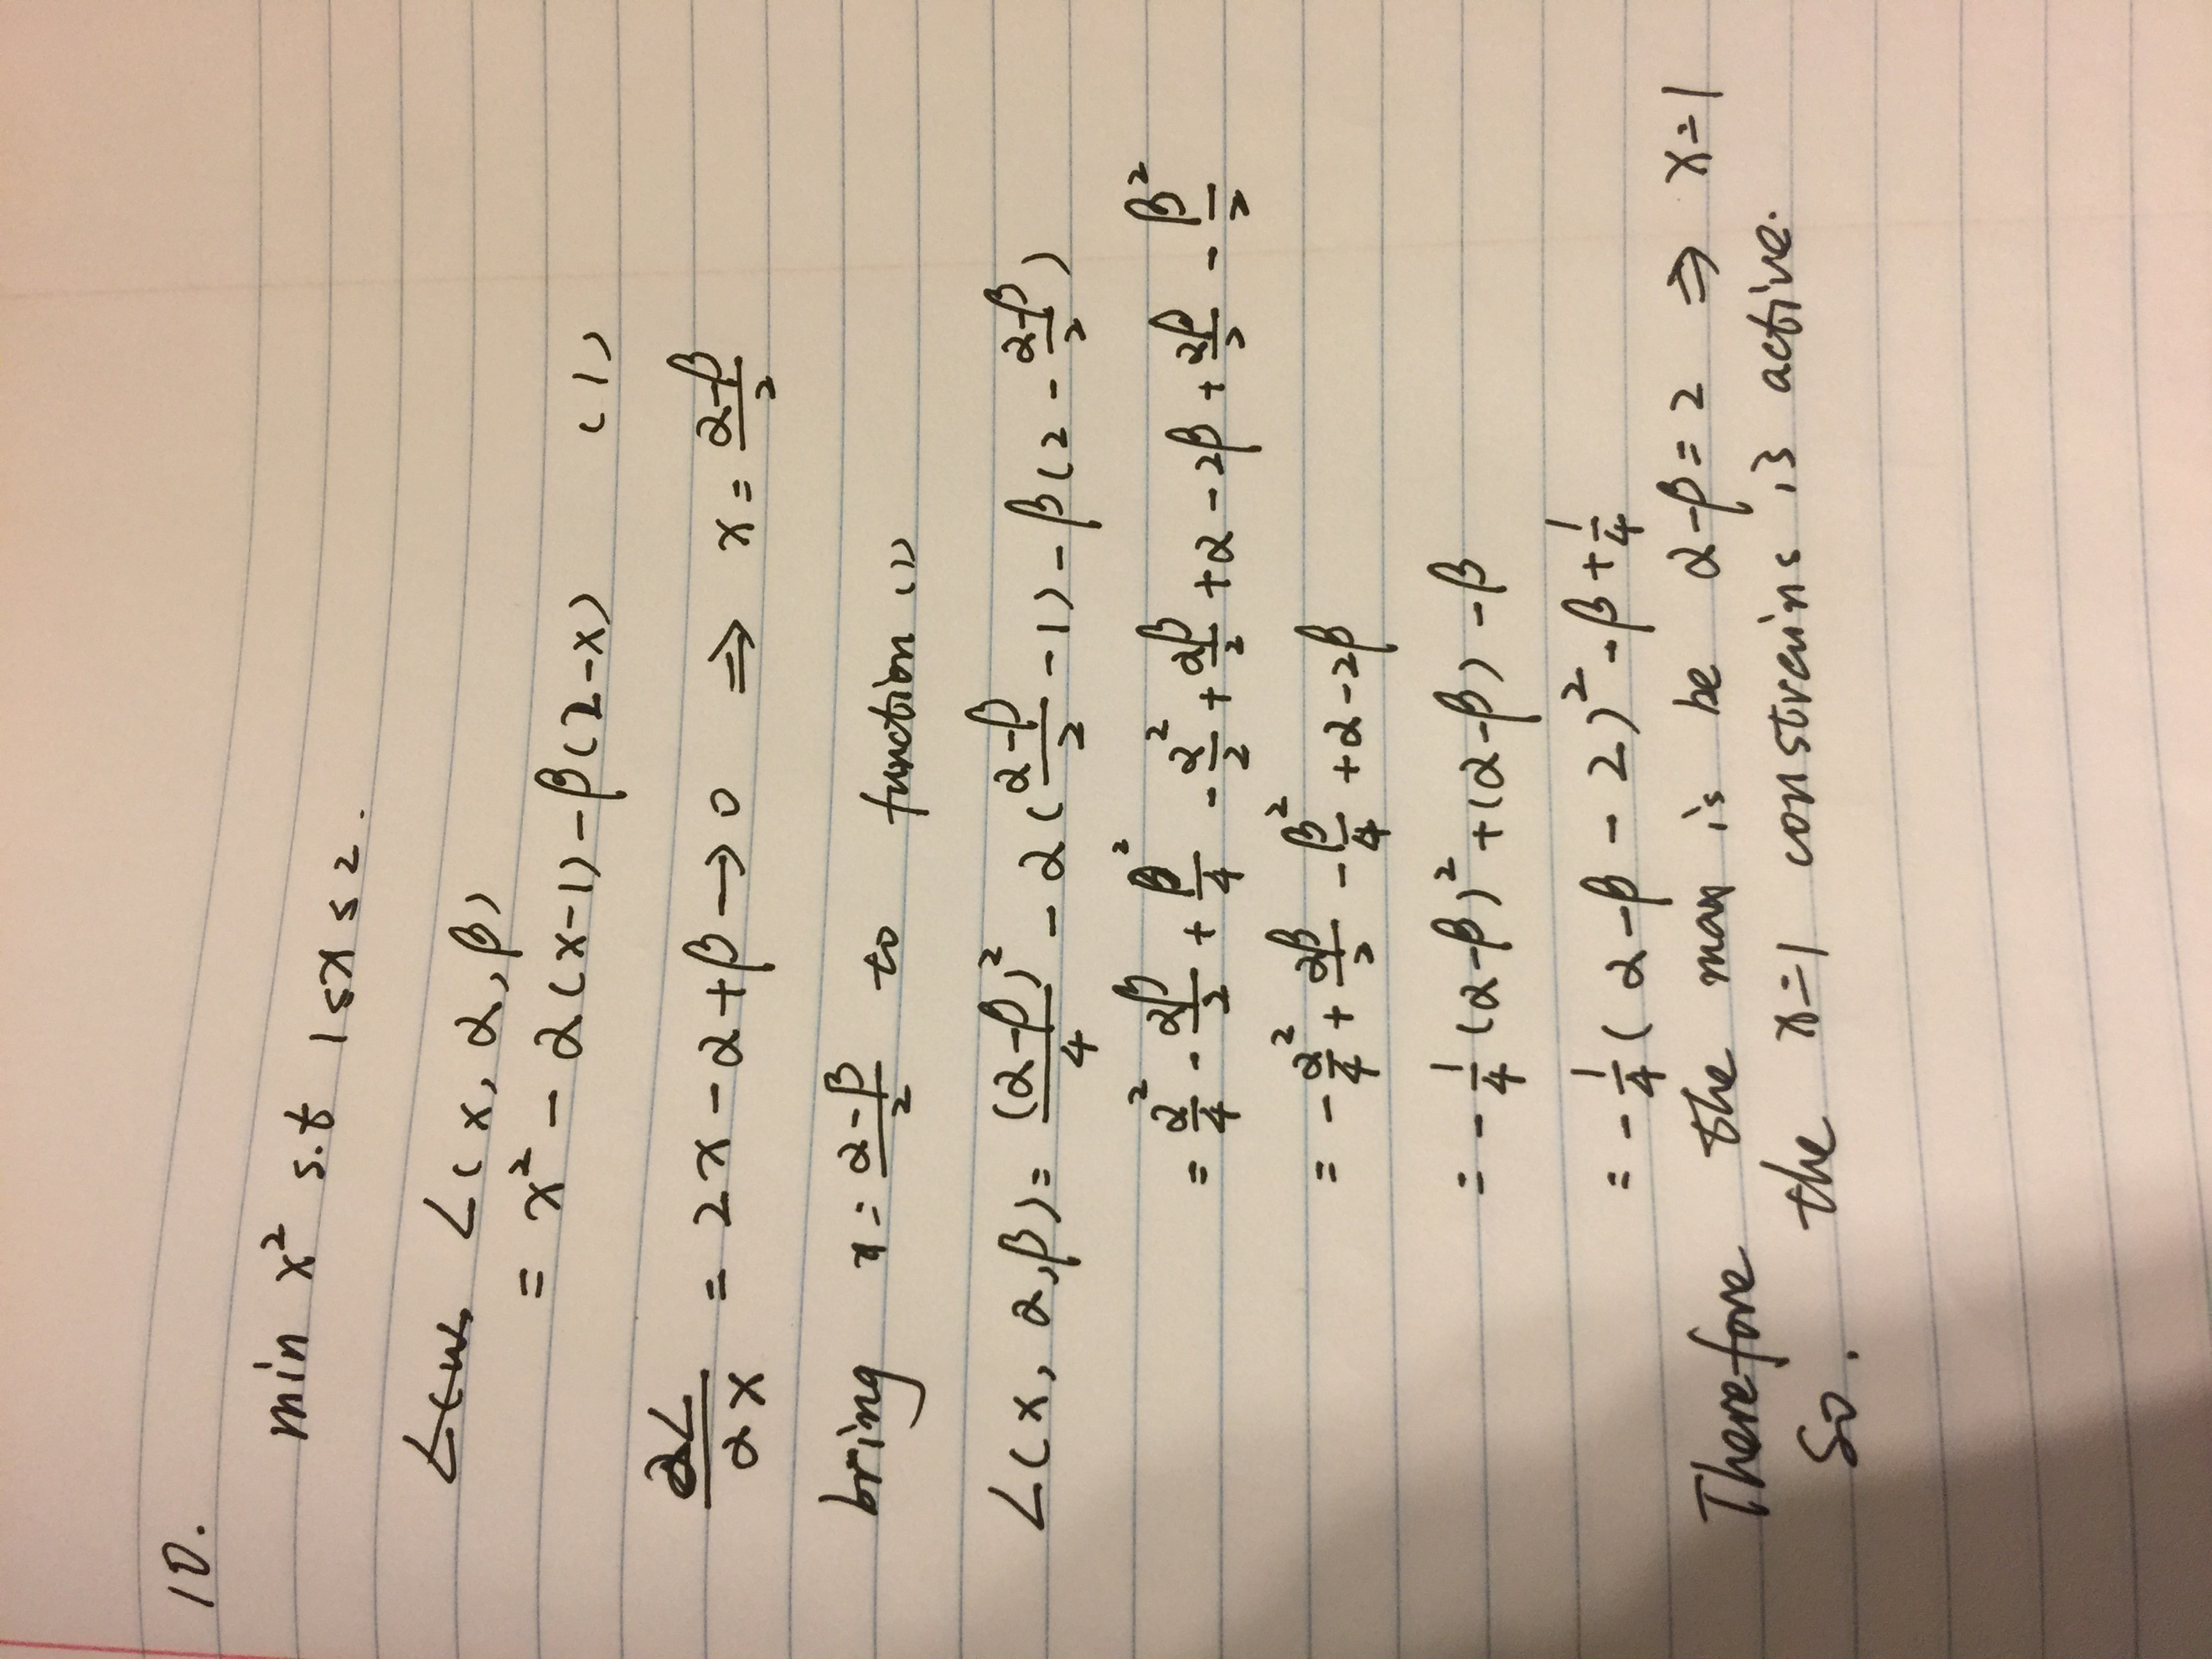 10.
min x² s.t 1≤x≤2.
L(x, α, β)
= x² - α(x-1) - β(2-x) (1)
∂L/∂x = 2x - α + β → 0 ⇒ x = (α-β)/2
bring x = (α-β)/2 to function (1)
L(x, α, β) = (α-β)²/4 - α((α-β)/2 - 1) - β(2 - (α-β)/2)
= α²/4 - αβ/2 + β²/4 - α²/2 + αβ/2 + α - 2β + αβ/2 - β²/2
= - α²/4 + αβ/2 - β²/4 + α - 2β
= - 1/4 (α-β)² + (α-β) - β
= - 1/4 (α-β - 2)² - β + 1/4
Therefore the max is be α-β = 2 ⇒ x=1
So. the x=1 constreins is active.